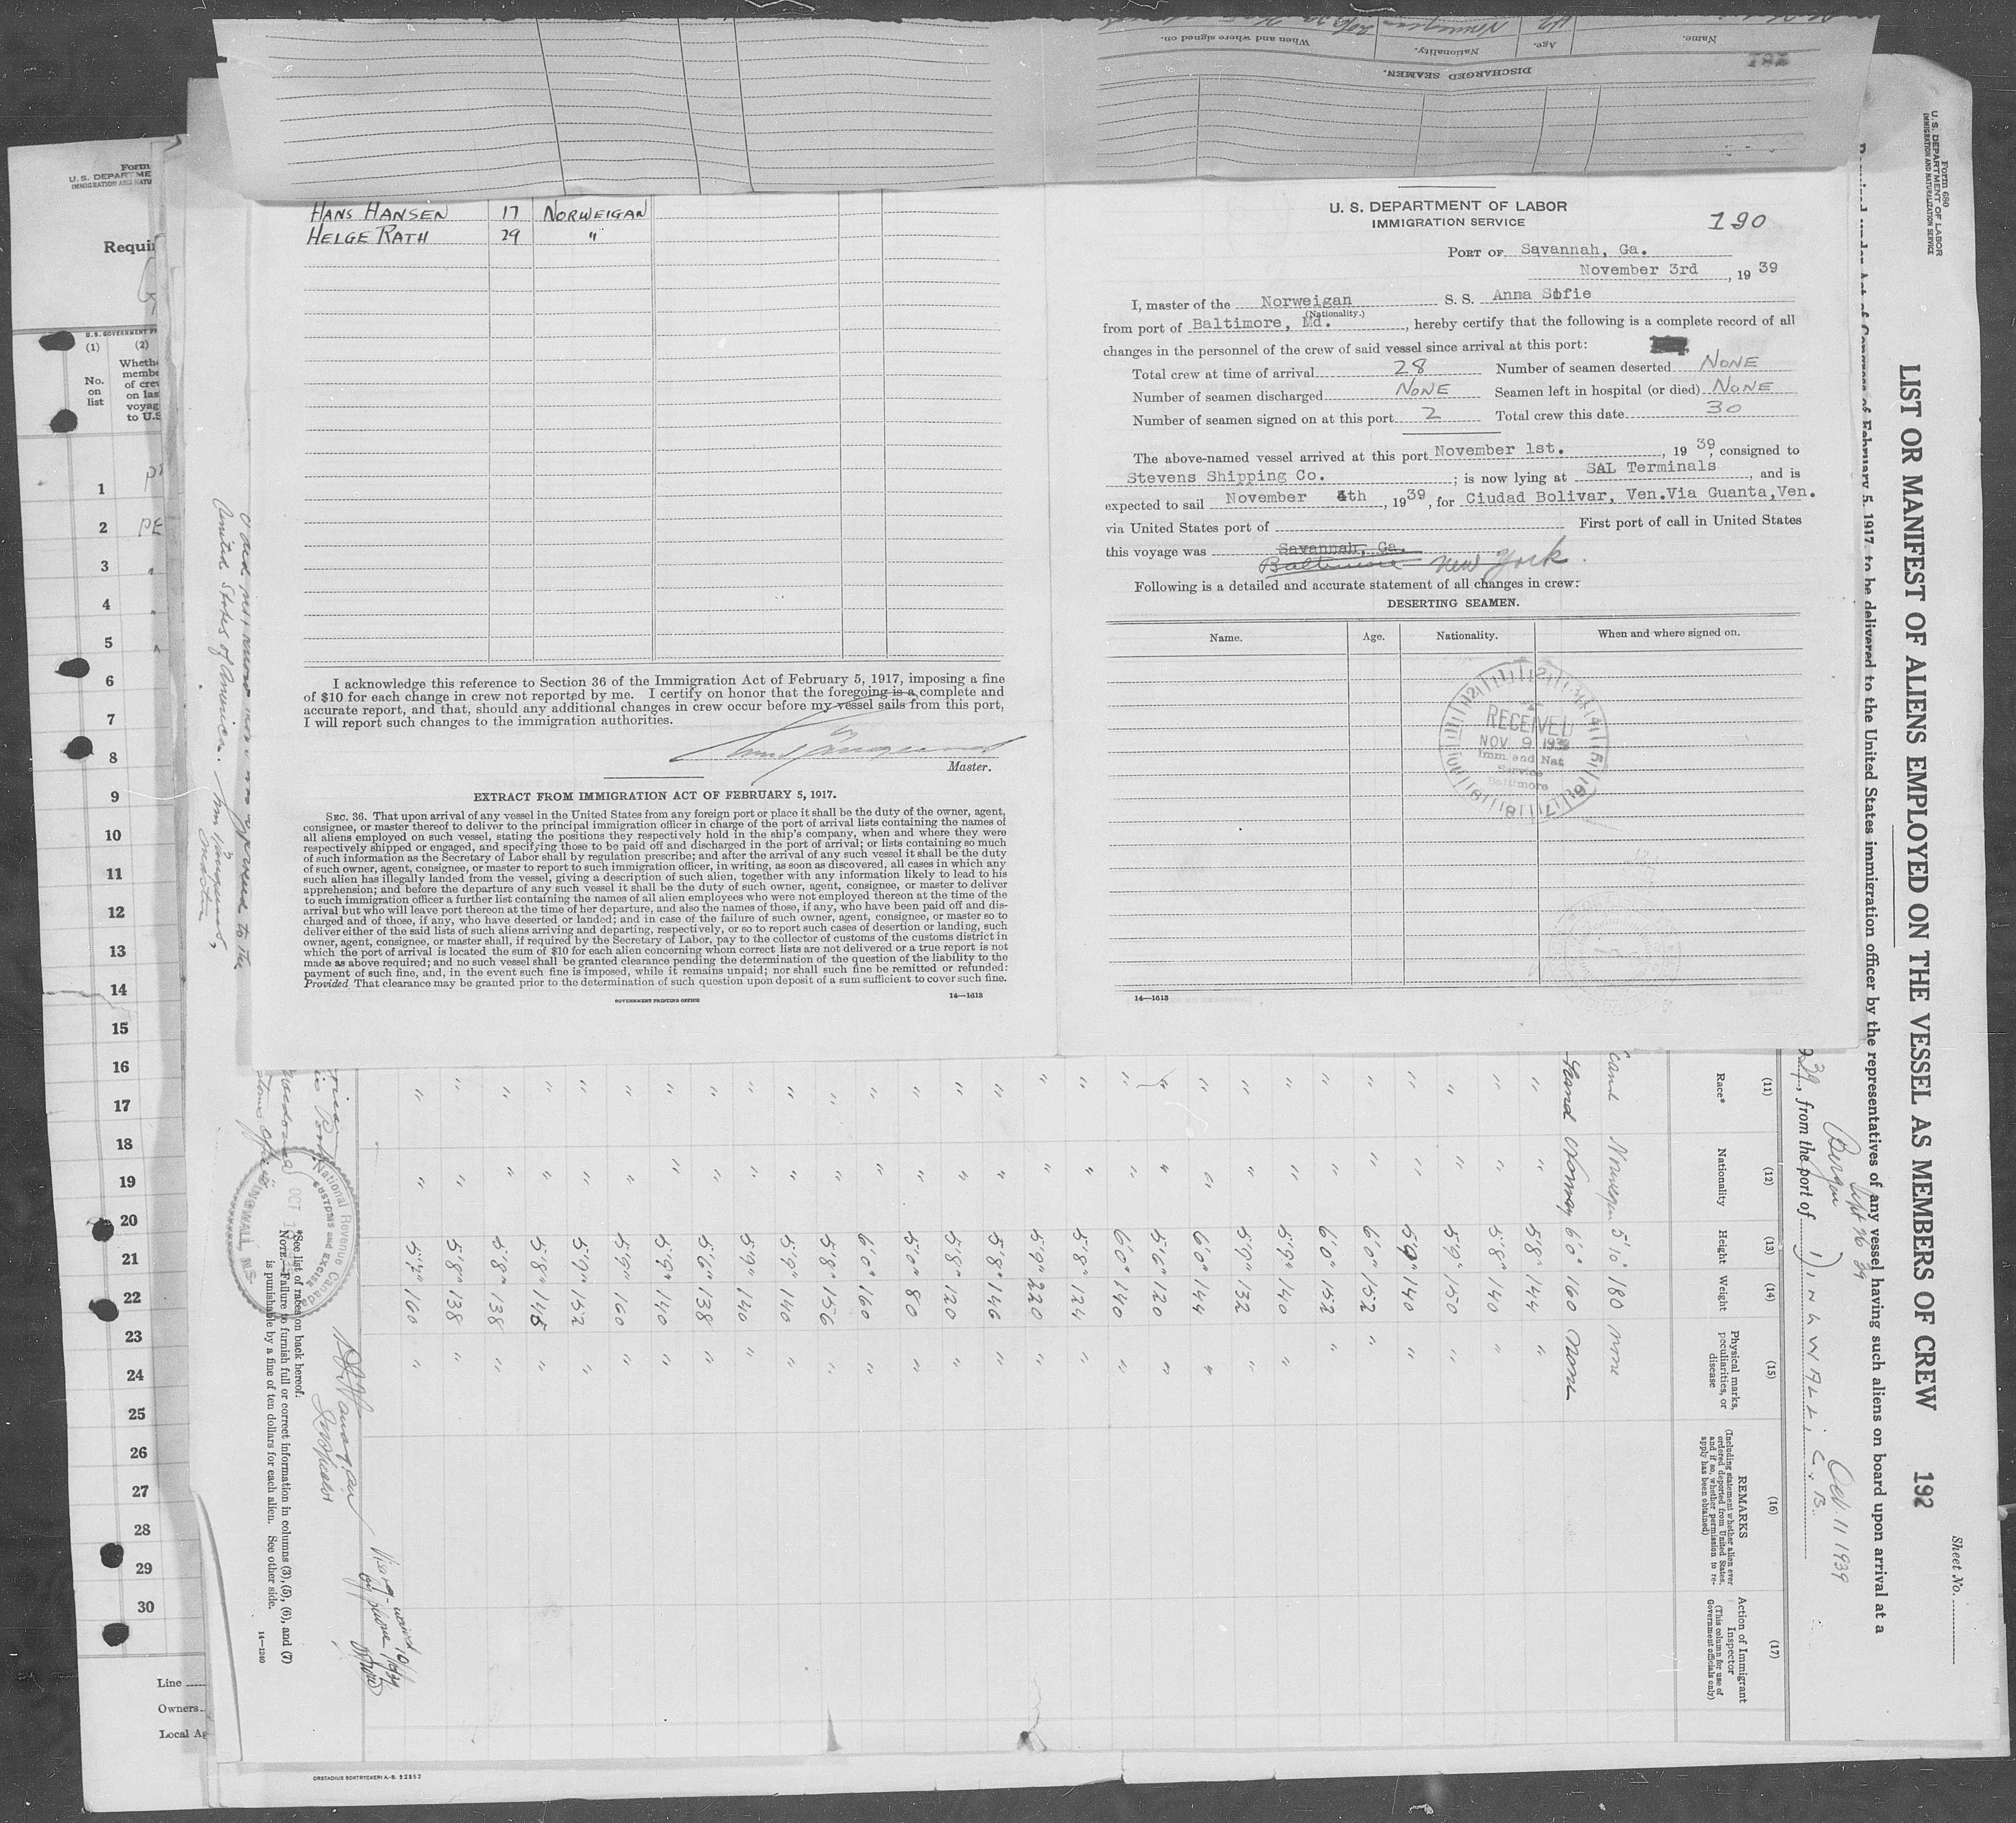 Name.
Age.
Nationality.
When and where signed on.
DISCHARGED SEAMEN.
HANS HANSEN 17 NORWEIGAN
HELGE RATH 29 "
I acknowledge this reference to Section 36 of the Immigration Act of February 5, 1917, imposing a fine
of $10 for each change in crew not reported by me. I certify on honor that the foregoing is a complete and
accurate report, and that, should any additional changes in crew occur before my vessel sails from this port,
I will report such changes to the immigration authorities.
Master.
EXTRACT FROM IMMIGRATION ACT OF FEBRUARY 5, 1917.
SEC. 36. That upon arrival of any vessel in the United States from any foreign port or place it shall be the duty of the owner, agent,
consignee, or master thereof to deliver to the principal immigration officer in charge of the port of arrival lists containing the names of
all aliens employed on such vessel, stating the positions they respectively hold in the ship's company, when and where they were
respectively shipped or engaged, and specifying those to be paid off and discharged in the port of arrival; or lists containing so much
of such information as the Secretary of Labor shall by regulation prescribe; and after the arrival of any such vessel it shall be the duty
of such owner, agent, consignee, or master to report to such immigration officer, in writing, as soon as discovered, all cases in which any
such alien has illegally landed from the vessel, giving a description of such alien, together with any information likely to lead to his
apprehension; and before the departure of any such vessel it shall be the duty of such owner, agent, consignee, or master to deliver
to such immigration officer a further list containing the names of all alien employees who were not employed thereon at the time of the
arrival but who will leave port thereon at the time of her departure, and also the names of those, if any, who have been paid off and dis-
charged and of those, if any, who have deserted or landed; and in case of the failure of such owner, agent, consignee, or master so to
deliver either of the said lists of such aliens arriving and departing, respectively, or so to report such cases of desertion or landing, such
owner, agent, consignee, or master shall, if required by the Secretary of Labor, pay to the collector of customs of the customs district in
which the port of arrival is located the sum of $10 for each alien concerning whom correct lists are not delivered or a true report is not
made as above required; and no such vessel shall be granted clearance pending the determination of the question of the liability to the
payment of such fine, and, in the event such fine is imposed, while it remains unpaid; nor shall such fine be remitted or refunded:
Provided That clearance may be granted prior to the determination of such question upon deposit of a sum sufficient to cover such fine.
GOVERNMENT PRINTING OFFICE 14—1613
U. S. DEPARTMENT OF LABOR
IMMIGRATION SERVICE
190
PORT OF Savannah, Ga.
November 3rd, 1939
I, master of the Norweigan S. S. Anna Sofie
(Nationality.)
from port of Baltimore, Md., hereby certify that the following is a complete record of all
changes in the personnel of the crew of said vessel since arrival at this port:
Total crew at time of arrival 28 Number of seamen deserted NONE
Number of seamen discharged NONE Seamen left in hospital (or died) NONE
Number of seamen signed on at this port 2 Total crew this date 30
The above-named vessel arrived at this port November 1st., 1939, consigned to
Stevens Shipping Co.; is now lying at SAL Terminals, and is
expected to sail November 4th, 1939, for Ciudad Bolivar, Ven.Via Guanta,Ven.
via United States port of First port of call in United States
this voyage was Savannah, Ga.
Baltimore New York
Following is a detailed and accurate statement of all changes in crew:
DESERTING SEAMEN.
Name. Age. Nationality. When and where signed on.
RECEIVED
NOV 9 1939
Imm. and Nat.
Service
Baltimore
14—1613
Form
U. S. DEPARTME
IMMIGRATION AND NATU
Requir
U. S. GOVERNMENT PR
(1) (2)
No. on list
Whethe
membe
of crew
on las
voyag
to U.S
1
2
3
4
5
6
7
8
9
10
11
12
13
14
15
16
17
18
19
20
21
22
23
24
25
26
27
28
29
30
Line
Owners
Local Ag
ORSTADIUS BOKTRYCKERI A.-B. 52852
Form 680
U. S. DEPARTMENT OF LABOR
IMMIGRATION AND NATURALIZATION SERVICE
Sheet No.
LIST OR MANIFEST OF ALIENS EMPLOYED ON THE VESSEL AS MEMBERS OF CREW 192
Required under Act of Congress of February 5, 1917, to be delivered to the United States immigration officer by the representatives of any vessel having such aliens on board upon arrival at a
Bergen Sept 26 39 Oct. 11 1939
39, from the port of DINGWALL, C. B.
(11) (12) (13) (14) (15) (16) (17)
Race*
Nationality
Height
Weight
Physical marks, peculiarities, or disease
REMARKS
(Including statement whether alien ever ordered deported from United States, and if so, whether permission to re-apply has been obtained)
Action of Immigrant Inspector
(This column for use of Government officials only)
Scand Norwegian 5'10" 180 none
Scand Norway 6'0" 160 None
" " 5'8" 144 "
" " 5'8" 140 "
" " 5'9" 150 "
" " 5'9" 140 "
" " 6'0" 152 "
" " 6'0" 152 "
" " 5'9" 140 "
" " 5'9" 132 "
" " 6'0" 144 "
" " 5'6" 120 "
" " 6'0" 140 "
" " 5'8" 124 "
" " 5'9" 220 "
" " 5'8" 146 "
" " 5'8" 120 "
" " 5'0" 80 "
" " 6'0" 160 "
" " 5'8" 156 "
" " 5'9" 140 "
" " 5'9" 140 "
" " 5'6" 138 "
" " 5'9" 140 "
" " 5'9" 160 "
" " 5'9" 152 "
" " 5'8" 145 "
" " 5'8" 138 "
" " 5'8" 138 "
" " 5'7" 160 "
National Revenue Canada
CUSTOMS and EXCISE
OCT
DINGWALL, N.S.
*See list of races on back hereof.
NOTE.—Failure to furnish full or correct information in columns (3), (5), (6), and (7)
is punishable by a fine of ten dollars for each alien. See other side.
14—1240
United States of America.